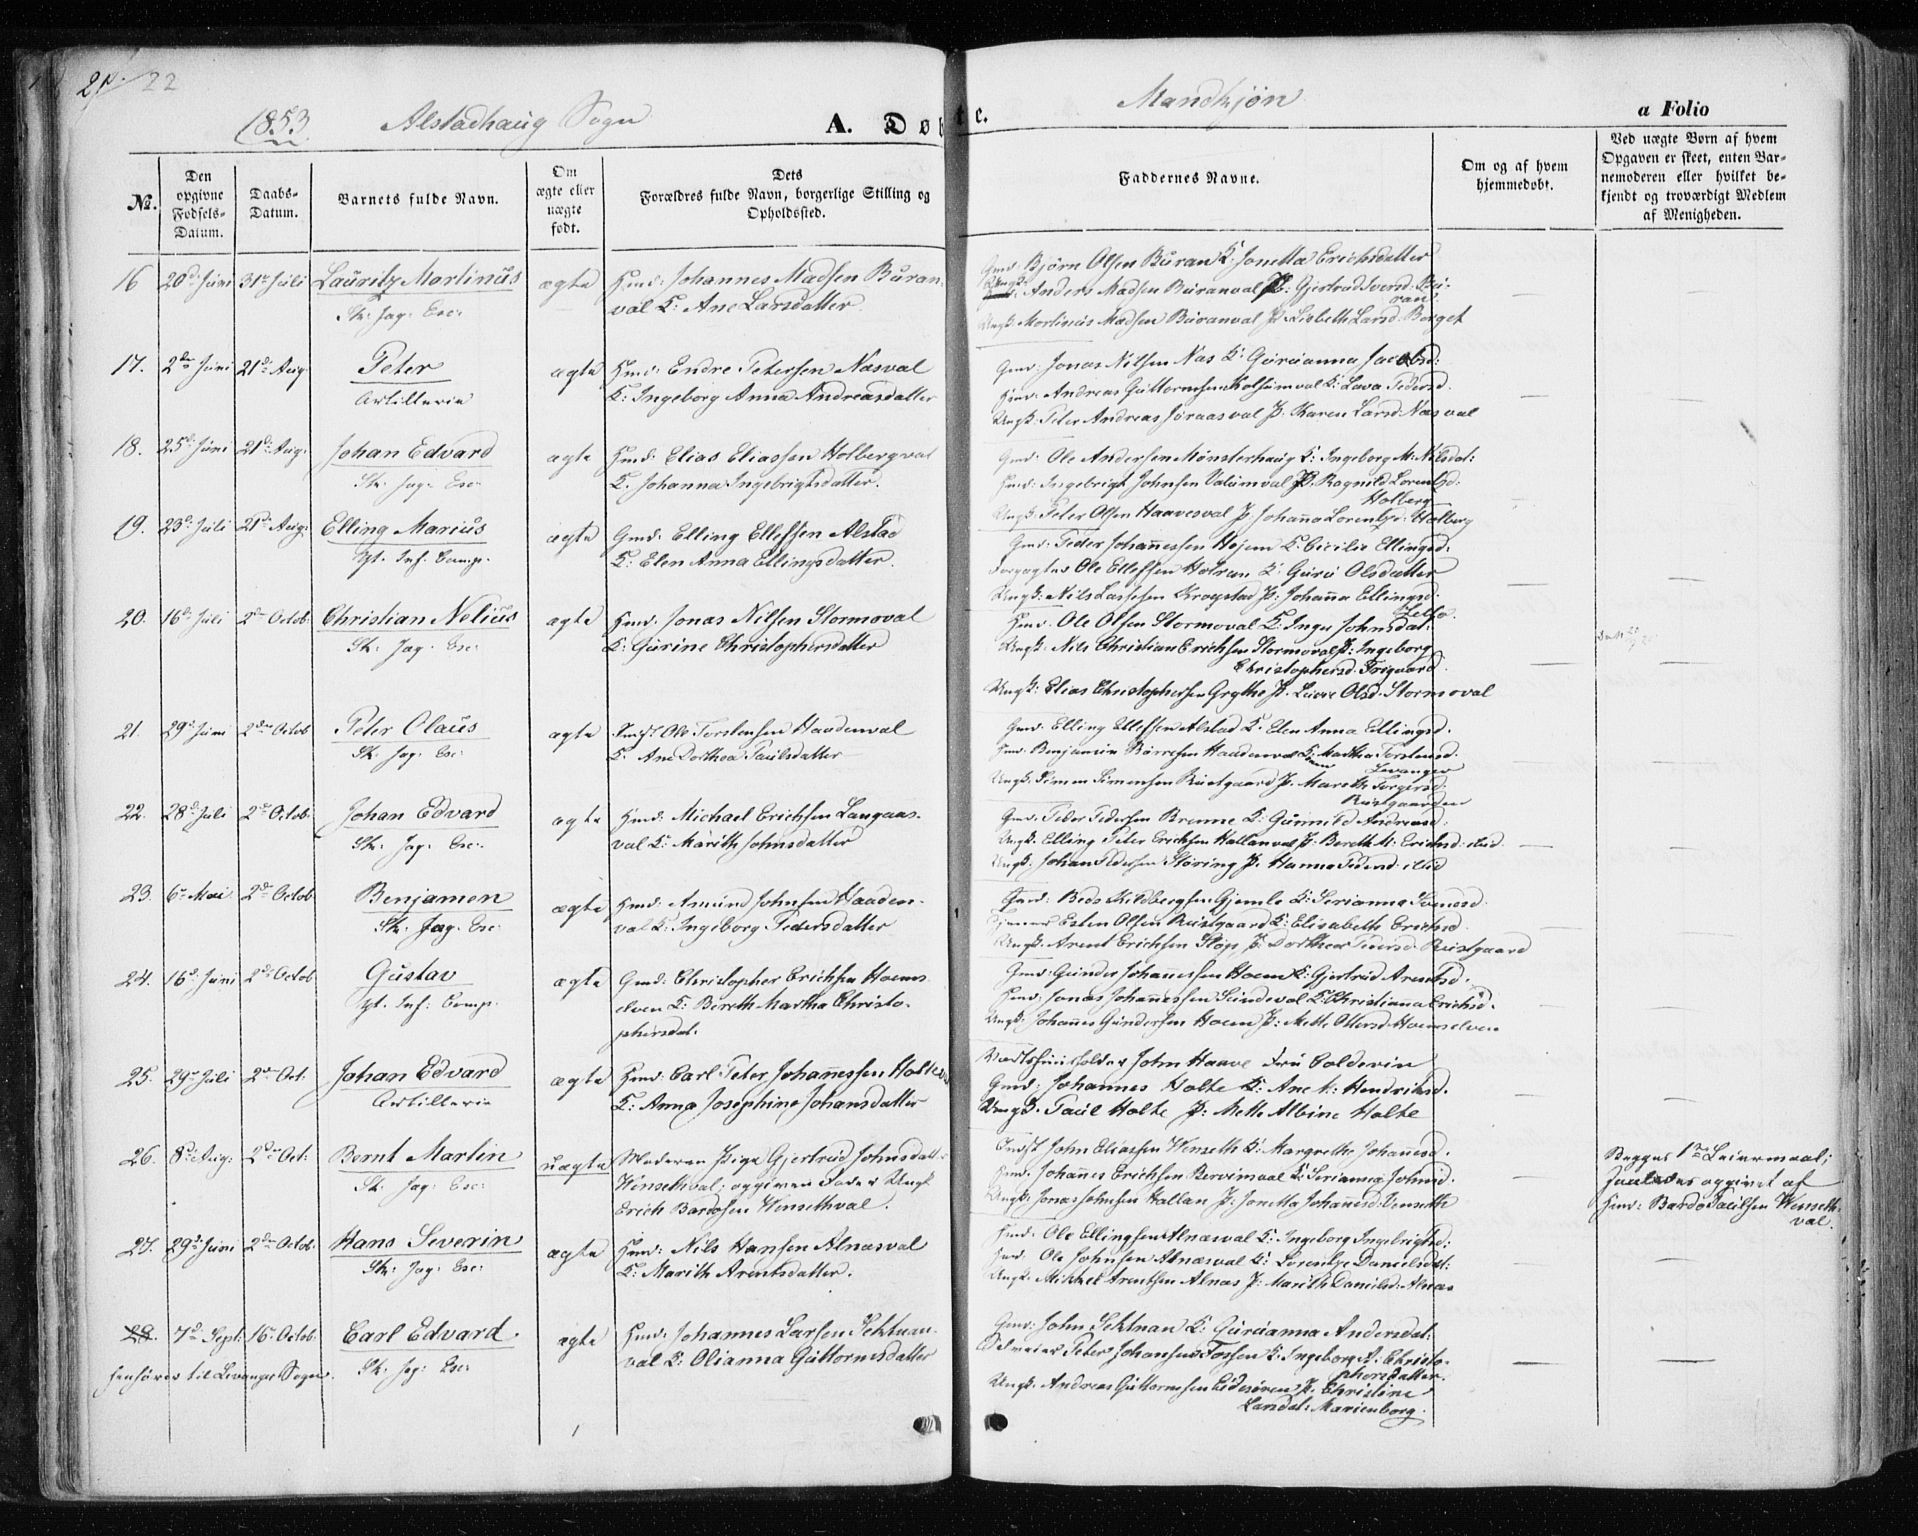 22
1853
Alstadhaug Sogn
A. Døbte.
Mandkjøn
a Folio
No.
Den opgivne Fødsels-Datum.
Daabs-Datum.
Barnets fulde Navn.
Om ægte eller uægte født.
Dets Forældres fulde Navn, borgerlige Stilling og Opholdssted.
Faddernes Navne.
Om og af hvem hjemmedøbt.
Ved uægte Børn af hvem Opgaven er skeet, enten Barnemoderen eller hvilket bekjendt og troværdigt Medlem af Menigheden.
16 20d Juni 31te Juli Lauritz Martinus ægte Hmd: Johannes Madsen Buran-
Sk: Jag: Esc:
val K: Ane Larsdatter
Gmd: Bjørn Olsen Buran K: Jonetta Erichsdatter
Ungk: Anders Madsen Buranval P: Gjertrud Iversd: Bu-
ran
Ungk: Martinus Madsen Buranval P: Lisbeth Larsd: Borget
17. 2den Juni 21de Aug: Peter ægte Hmd: Endre Petersen Næsval
Artillerie
K: Ingeborg Anna Andreasdatter
Gmd: Jonas Nilsen Næs K: Gurianna Jacobsd:
Hmd: Andreas Guttormsen Kolsumval K: Lava Pedersd.
Ungk: Peter Andreas Joraasval P: Karen Larsd: Næsval
18. 25d: Juni 21de Aug: Johan Edvard ægte Hmd: Elias Eliassen Holbergval
Sk: Jag: Esc:
K. Johanna Ingebrigtsdatter.
Gmd: Ole Andersen Mønsterhaug K: Ingeborg M: Nilsdat:
Hmd: Ingebrigt Johnsen Valumval P. Ragnild Lorentsd:
Holberg
Ungk: Peter Olsen Haavesval P: Johanna Lorentsd: Holberg
19. 23d: Juli 21de Aug: Elling Marius ægte Gmd: Elling Ellefsen Alstad
Inf: Comp.
K: Elen Anna Ellingsdatter.
Gmd: Peder Johannessen Hojem K: Cicilie Ellingsd.
Ole Ellefsen Holran K: Guru Olsdatter
Ungk: Nils Lassesen Krogstad P: Johanna Ellingsd.
20. 16d: Juli 2den Octob: Christian Nelius ægte Hmd: Jonas Nilsen Stormoval
Sk: Jag: Esc:
K: Gurine Christophersdatter
Hmd: Ole Olsen Stormoval K: Inger Johnsdat:
Ungk: Nils Christian Erichsen Stormoval P: Ingeborg
Christophersd: Frigaard
Ungk: Elias Christophersen Grythe P: Olsd: Stormoval
21. 29d: Juni 2den Octob Peter Olaus ægte Ole Torstensen Haadenval
Sk: Jag: Esc:
K. Ane Dorthea Paulsdatter
Gmd: Elling Ellefsen Alstad K: Elen Anna Ellingsd.
Hmd: Benjamin Børresen Haadenval K: Martha Torstensd.
Levanger
Ungk: Simon Simensen Rustgaard P. Mareth Torgersd.
Rustgaarden
22. 28d: Juli 2den Octob. Johan Edvard ægte Hmd: Michael Erichsen Langaas-
Sk: Jag: Esc:
val K: Marith Johnsdatter
Gmd: Peter Pedersen Brenne K: Gunnild Andreasd:
Ungk: Elling Peter Erichsen Hallanval P: Bereth M: Erichsd: ibid
Ungk: Johan Pedersen Støring P. Hanna Pedersd: ibid
23. 6te Mai 2den Octob. Benjamen ægte Hmd: Amund Johnsen Haaden-
Sk: Jag: Esc:
val K: Ingeborg Pedersdatter
Gjemle K: Serianna
Esten Olsen Rustgaard K: Elisabeth Erichsd
Ungk: Arent Erichsen P: Dorthea Pedersd: Rustgaard
24. 16d: Juni 2den Octob Gustav ægte Gmd: Christopher Erichsen Hoems-
Inf: Comp.
elven K: Bereth Martha Christo-
phersdat.
Gmd: Gunder Johannessen Hoem K: Gjertrud Arentsd.
Hmd: Jonas Johannessen Sundeval K: Christiana Erichsd.
Ungk: Johannes Gundersen Hoem P: Mette Ottersd: Hoemselven
25. 29de Juli 2den Oct: Johan Edvard ægte Hmd: Carl Peter Johannessen Holte
Artillerie
K: Anna Josephine Johansdatter
John Haave Fru Colderin
Gmd: Johannes Holte K: Ane M: Hendriksd.
Ungk. Paul Holte P: Mette Albine Holte
26. 8de Aug: 2den Oct: Bernt Martin uægte Moderen Pige Gjertrud Johnsdatt:
Sk: Jag: Esc:
Winsethval; opgiven Fader Ungk
Erich Bardosen Winsethval.
Indst John Eliassen Wenseth K: Margrethe Johannesd.
Hmd: Johannes Erichsen Bervimval K: Serianna Johnsd:
Ungk: Jonas Johnsen Hallan P: Jonetta Johannesd: Venseth
Begges 1te Leiermaal;
opgivet af
Hmd: Bardo Paulsen Winseth-
val.
27. 29de Juni 2den Octob. Hans Severin ægte Hmd: Nils Hansen Alnæsval
Sk: Jag: Esc:
K: Marith Arentsdatter.
Hmd: Ole Ellingsen Alnæsval K: Ingeborg Ingebrigtsd:
Hmd Ole Johnsen Alnæsval K: Lorentze Danielsdat:
Ungk: Mikkel Arentsen Alnæs P: Marith Danielsd: Alnæs
28. 7de Sept: 16de Octob: Carl Edvard ægte Hmd: Johannes Larsen Sektnan-
henhører til Levanger Sogn.
Sk: Jag: Esc:
val K: Olianna Guttormsdatter
Gmd: John Sektnan K: Gurianna Andersdat:
Peter Johansen Fossen K: Ingeborg A: Christo-
phersdatter.
Ungk: Andreas Guttormsen Eidesøren P: Christine
Larsdat: Marienborg.